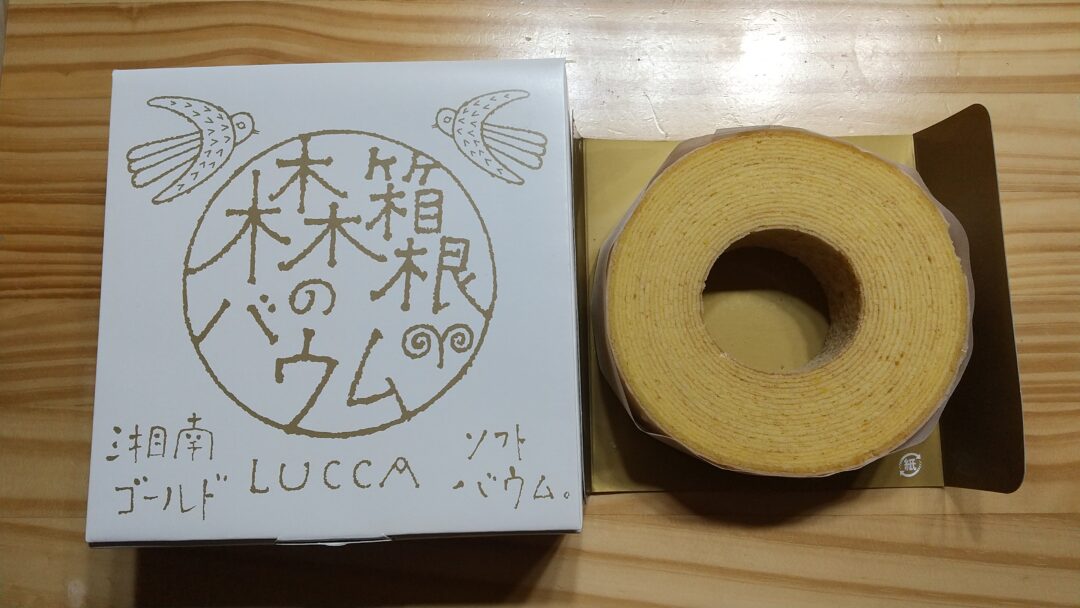 箱根
森の
バウム
湘南
ゴールド
LUCCA
ソフト
バウム。
紙